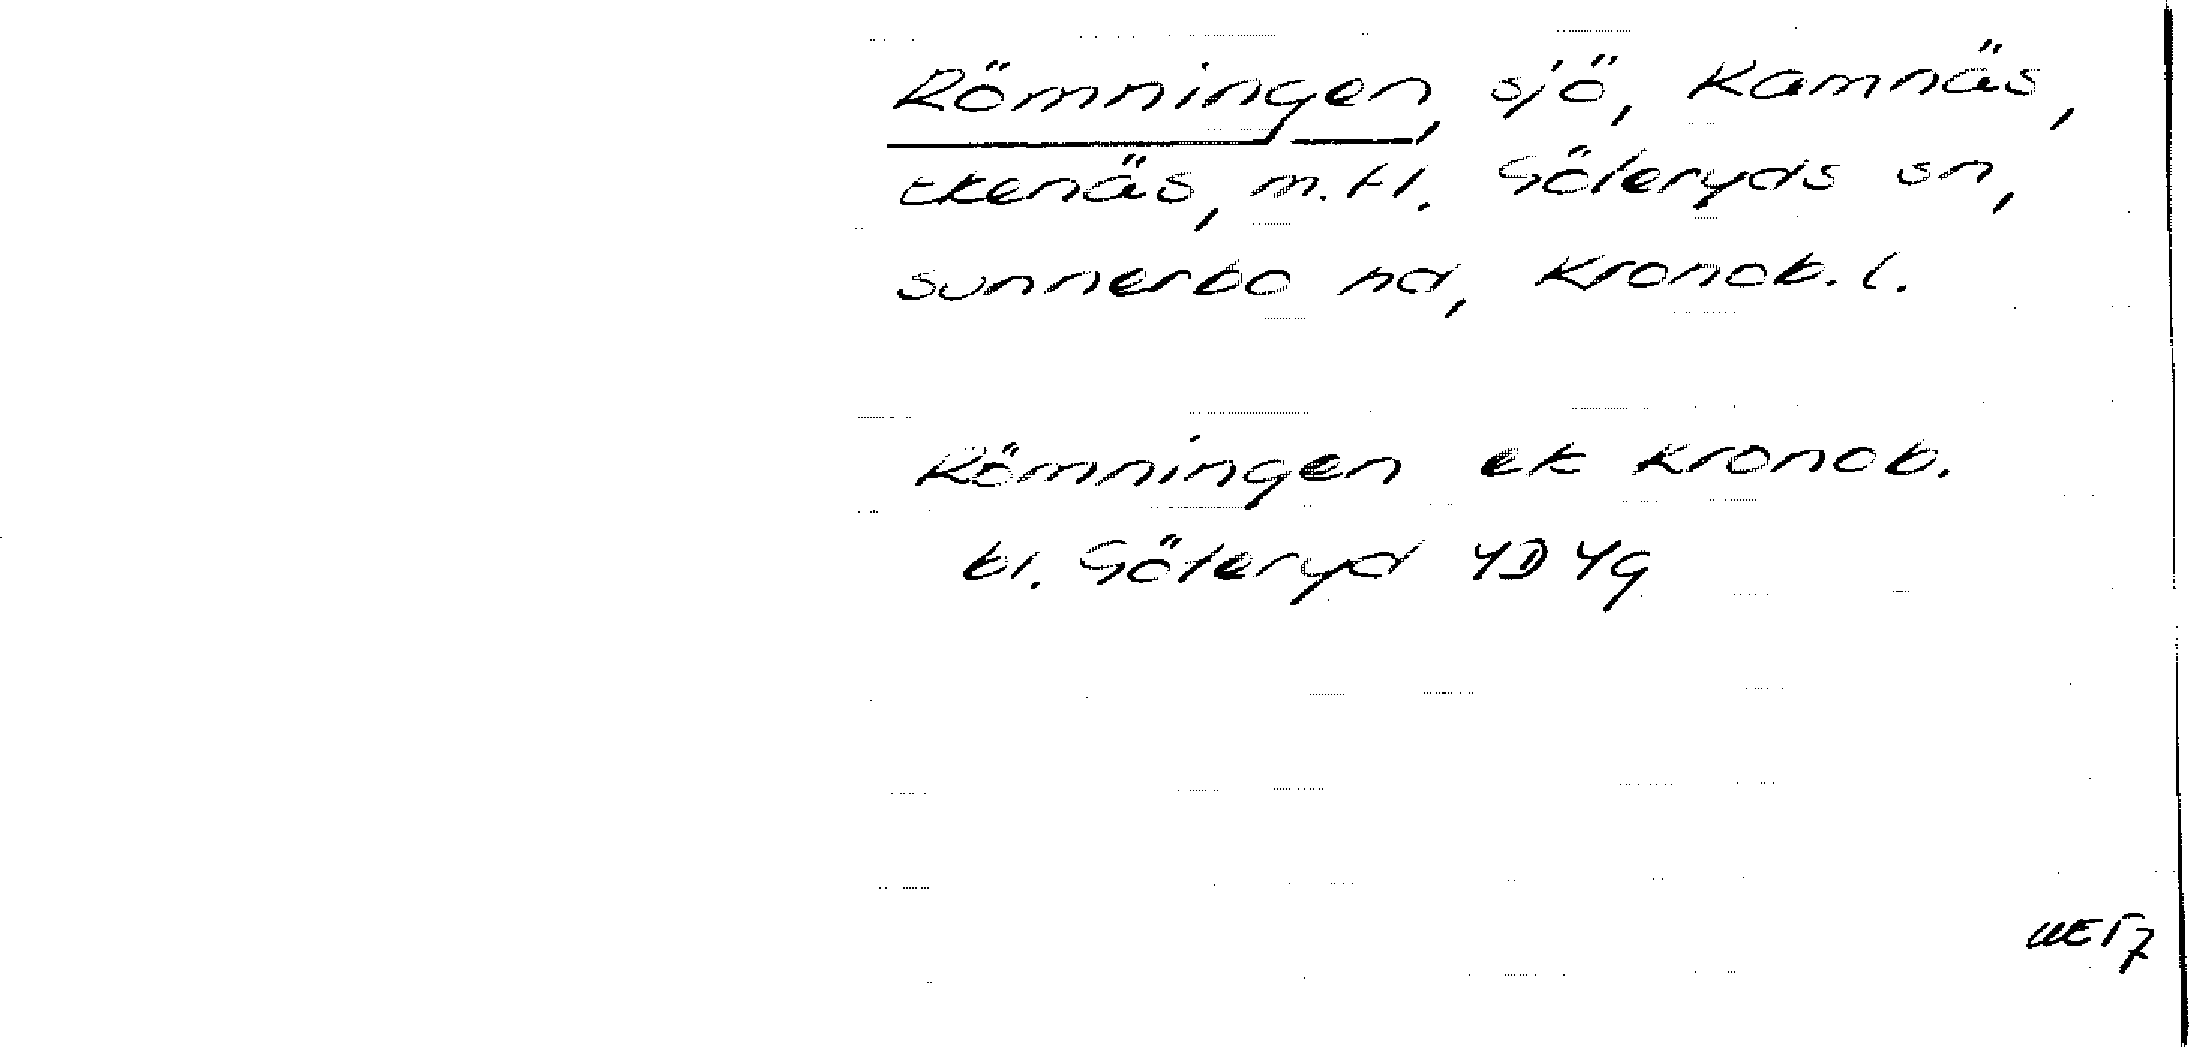 Römningen, sjö, Kamnäs,
Ekenäs, m.fl. Göteryds sn,
Sunnerbo hd, Kronob. l.
Römningen ek Kronob.
bl. Göteryd 4D 4g